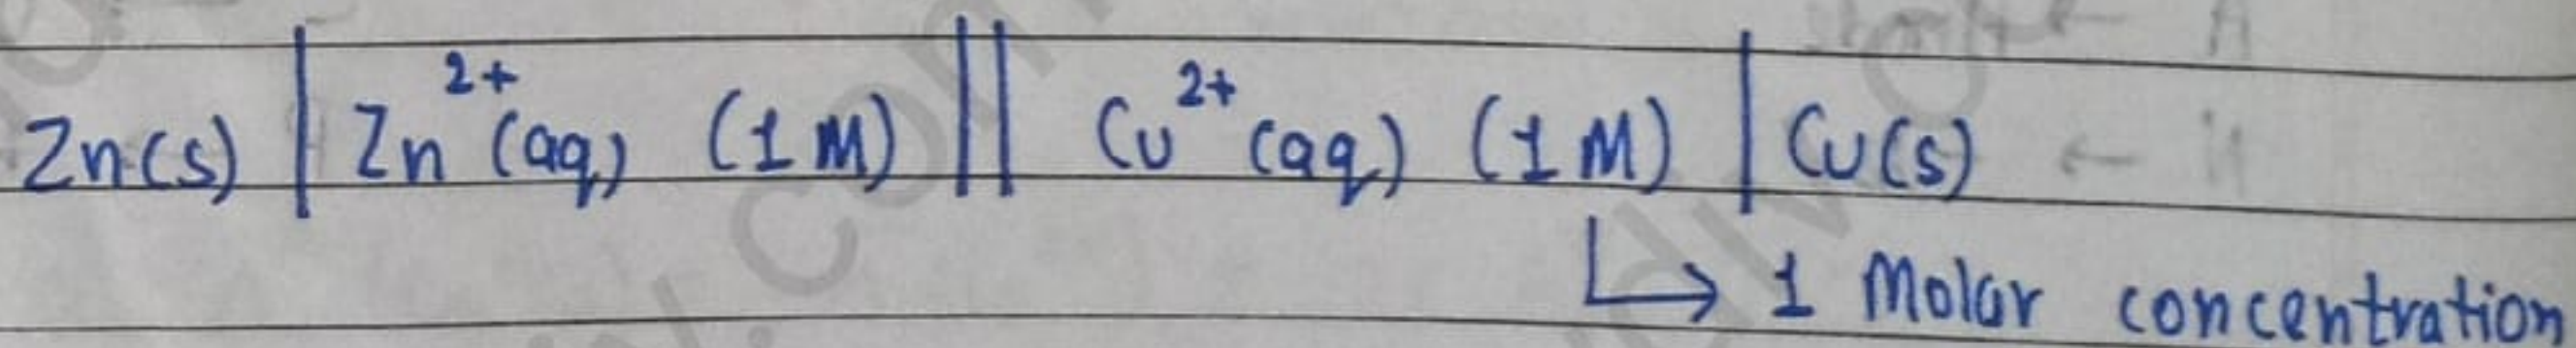 Zn(s) | Zn²⁺(aq) (1M) || Cu²⁺(aq) (1M) | Cu(s)
↳ 1 Molar concentration